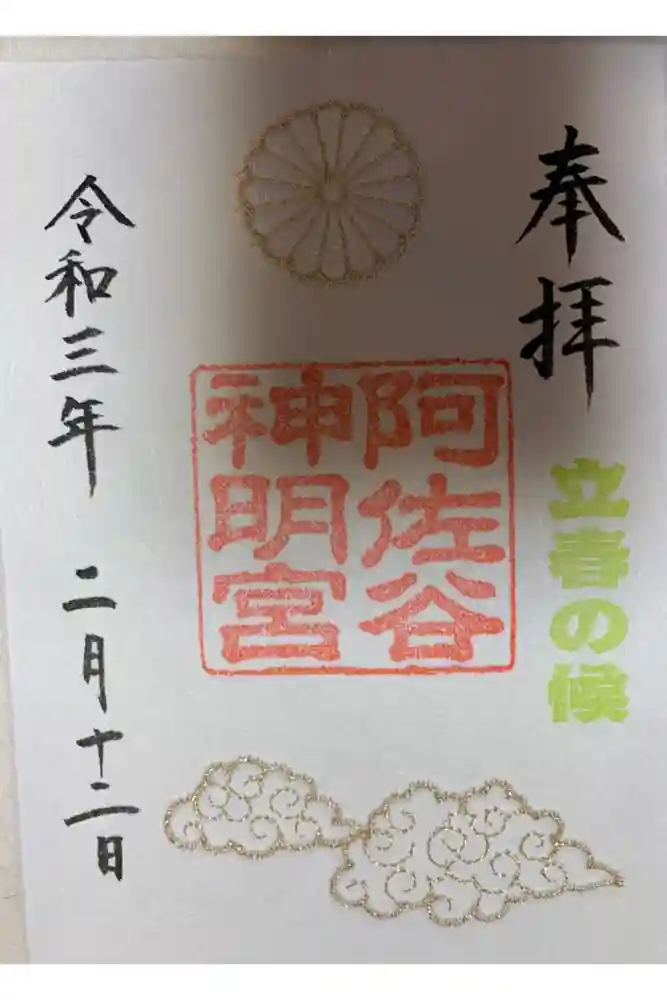 奉拝
立春の候
阿佐谷
神明宮
令和三年 二月十二日